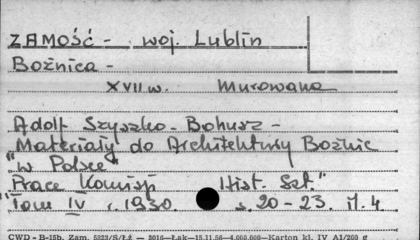 ZAMOŚĆ - woj. Lublin
Bożnica -
XVII w. Murowana
Adolf Szyszko - Bohusz -
Materiały do Architektury Bożnic
"w Polsce"
Prace Komisji Hist. Szt."
"Tom IV r. 1930. s. 20-23. il. 4
CWD - B-15b. Zam. 5823/S/Łż — 2016—Łsk—15.11.56—4.000.000—Karton kl. IV A1/200 g